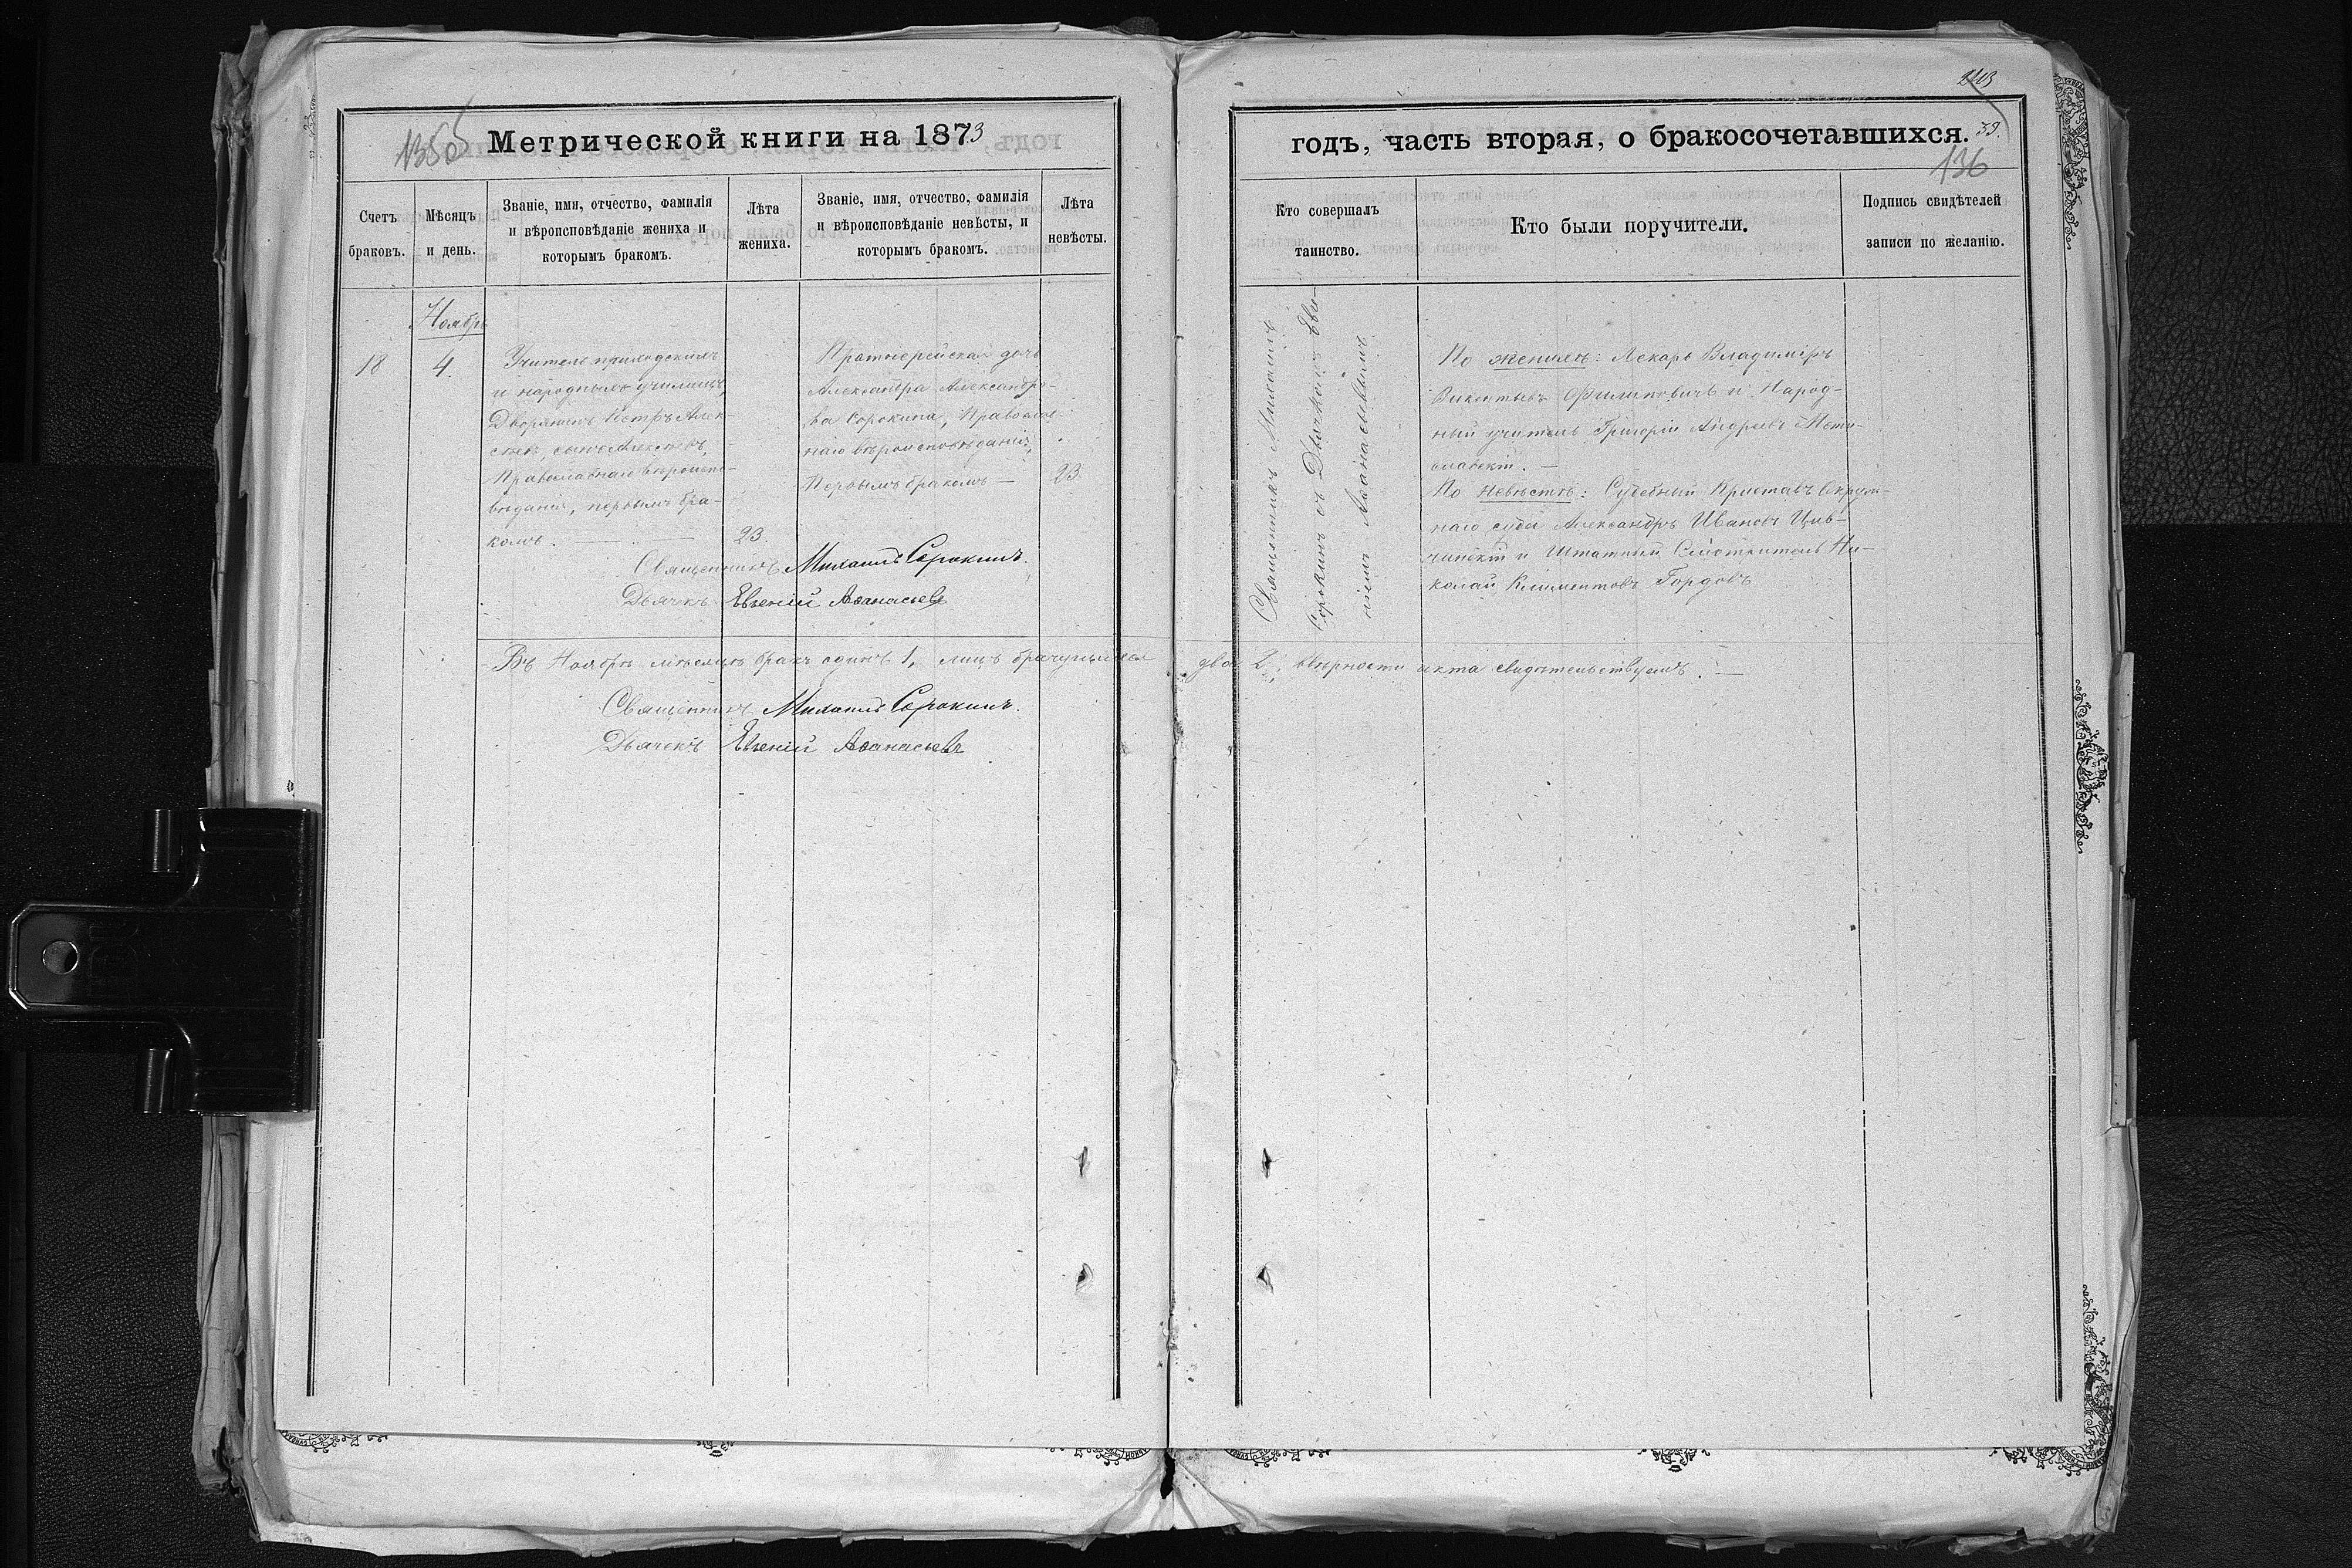 135об
Метрической книги на 1873
Счетъ браковъ.
Мѣсяцъ и день.
Званіе, имя, отчество, фамилія
и вѣроисповѣданіе жениха и
которымъ бракомъ.
Лѣта
жениха.
Званіе, имя, отчество, фамилія
и вѣроисповѣданіе невѣсты, и
которымъ бракомъ.
Лѣта
невѣсты.
Ноябрь
18
4.
Учитель приходскихъ
и народныхъ училищъ,
Дворянинъ Петръ Алек-
сѣевъ, сынъ Алексѣевъ,
Православнаго вѣроиспо-
вѣданія, первымъ бра-
комъ.
23.
Протоіерейская дочь
Александра Александро-
ва Сорокина, Православ-
наго вѣроисповѣданія,
Первымъ бракомъ —
23.
Священникъ Михаилъ Сорокинъ.
Дьячекъ Евгеній Аѳанасьевъ
Въ Ноябрѣ мѣсяцѣ бракъ одинъ 1, лицъ брачущихся два 2; вѣрности акта свидѣтельствуемъ. —
Священникъ Михаилъ Сорокинъ.
Дьячекъ Евгеній Аѳанасьевъ
годъ, часть вторая, о бракосочетавшихся.
39.
136
Кто совершалъ
таинство.
Кто были поручители.
Подпись свидѣтелей
записи по желанію.
Священникъ Михаилъ
Сорокинъ съ Дьячкомъ Евг-
ніемъ Аѳанасьевымъ
По женихѣ: Лекарь Владиміръ
Викентьевъ Филиповичъ и Народ-
ный учитель Григорій Андреевъ Мсти-
славскій. —
По невѣстѣ: Судебный Приставъ Окруж-
наго суда Александръ Ивановъ
и Штатный Смотритель Ни-
колай Климентовъ Гордовъ